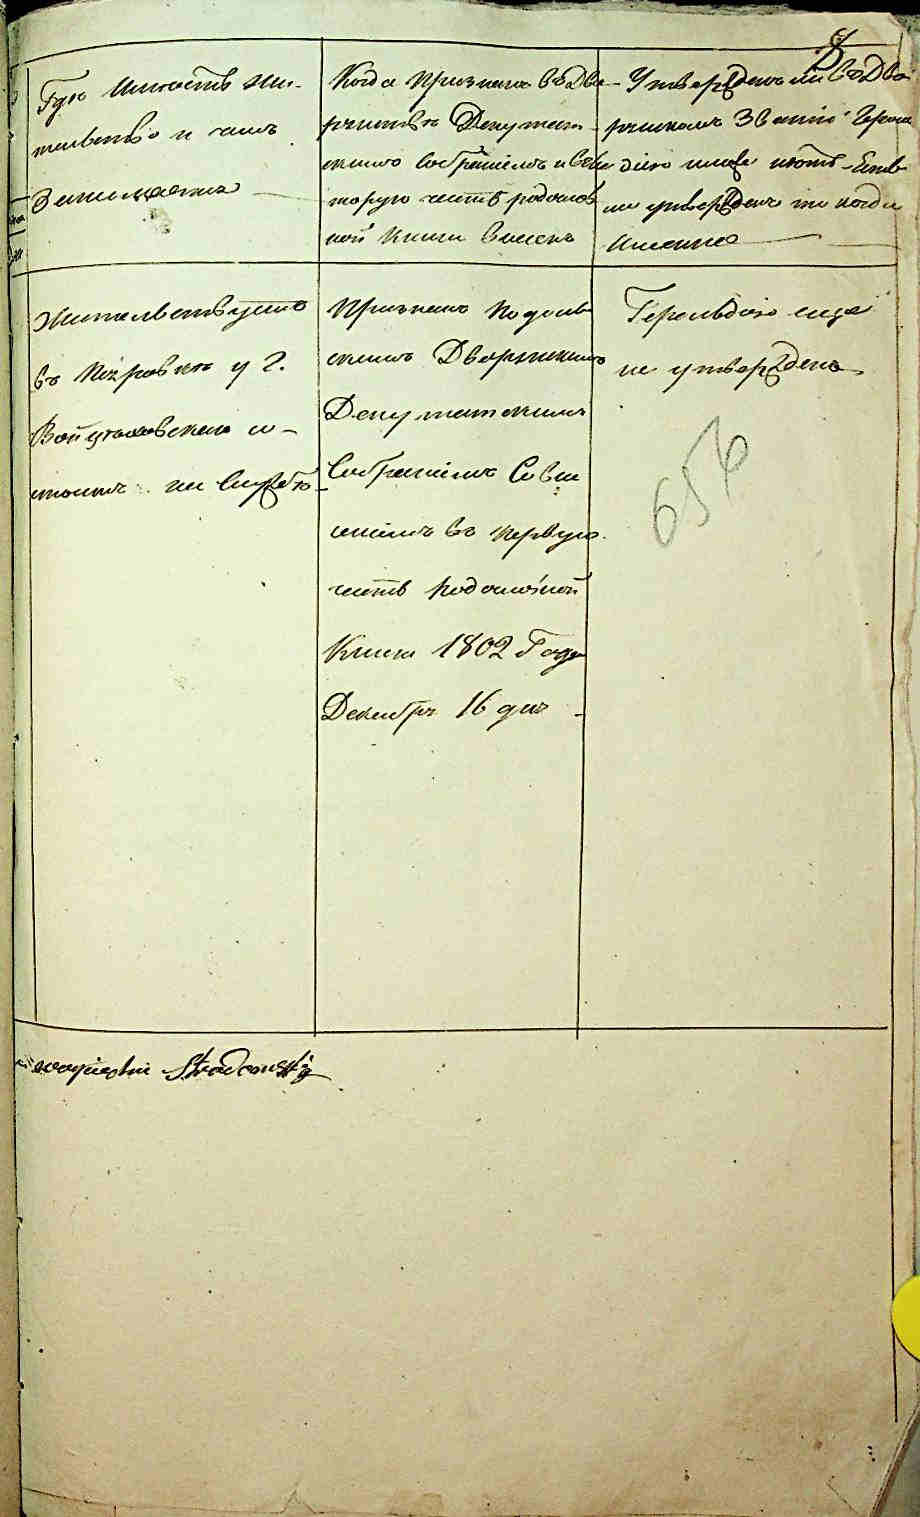 8
Где Имѣетъ Жи-
тельство и чемъ
Занимается
Когда Признанъ въ Дво-
рянствѣ Депутат-
скимъ Собраніемъ и въ ко
торую часть родослов
ной Книги Внесенъ
Утвержденъ ли въ Дво
рянскомъ Званіи Герольдіею или нѣтъ Если
утвержденъ то когда
Именно
Жительствуетъ
въ Покровкѣ у Г.
со-
стоитъ на Службѣ
Признанъ Подоль
скимъ Дворянскимъ
Депутатскимъ
Собраніемъ Совне
сеніемъ въ первую
часть Родословной
Книги 1802 Года
Декабря 16 дня
Герольдіею еще
не утвержденъ
656